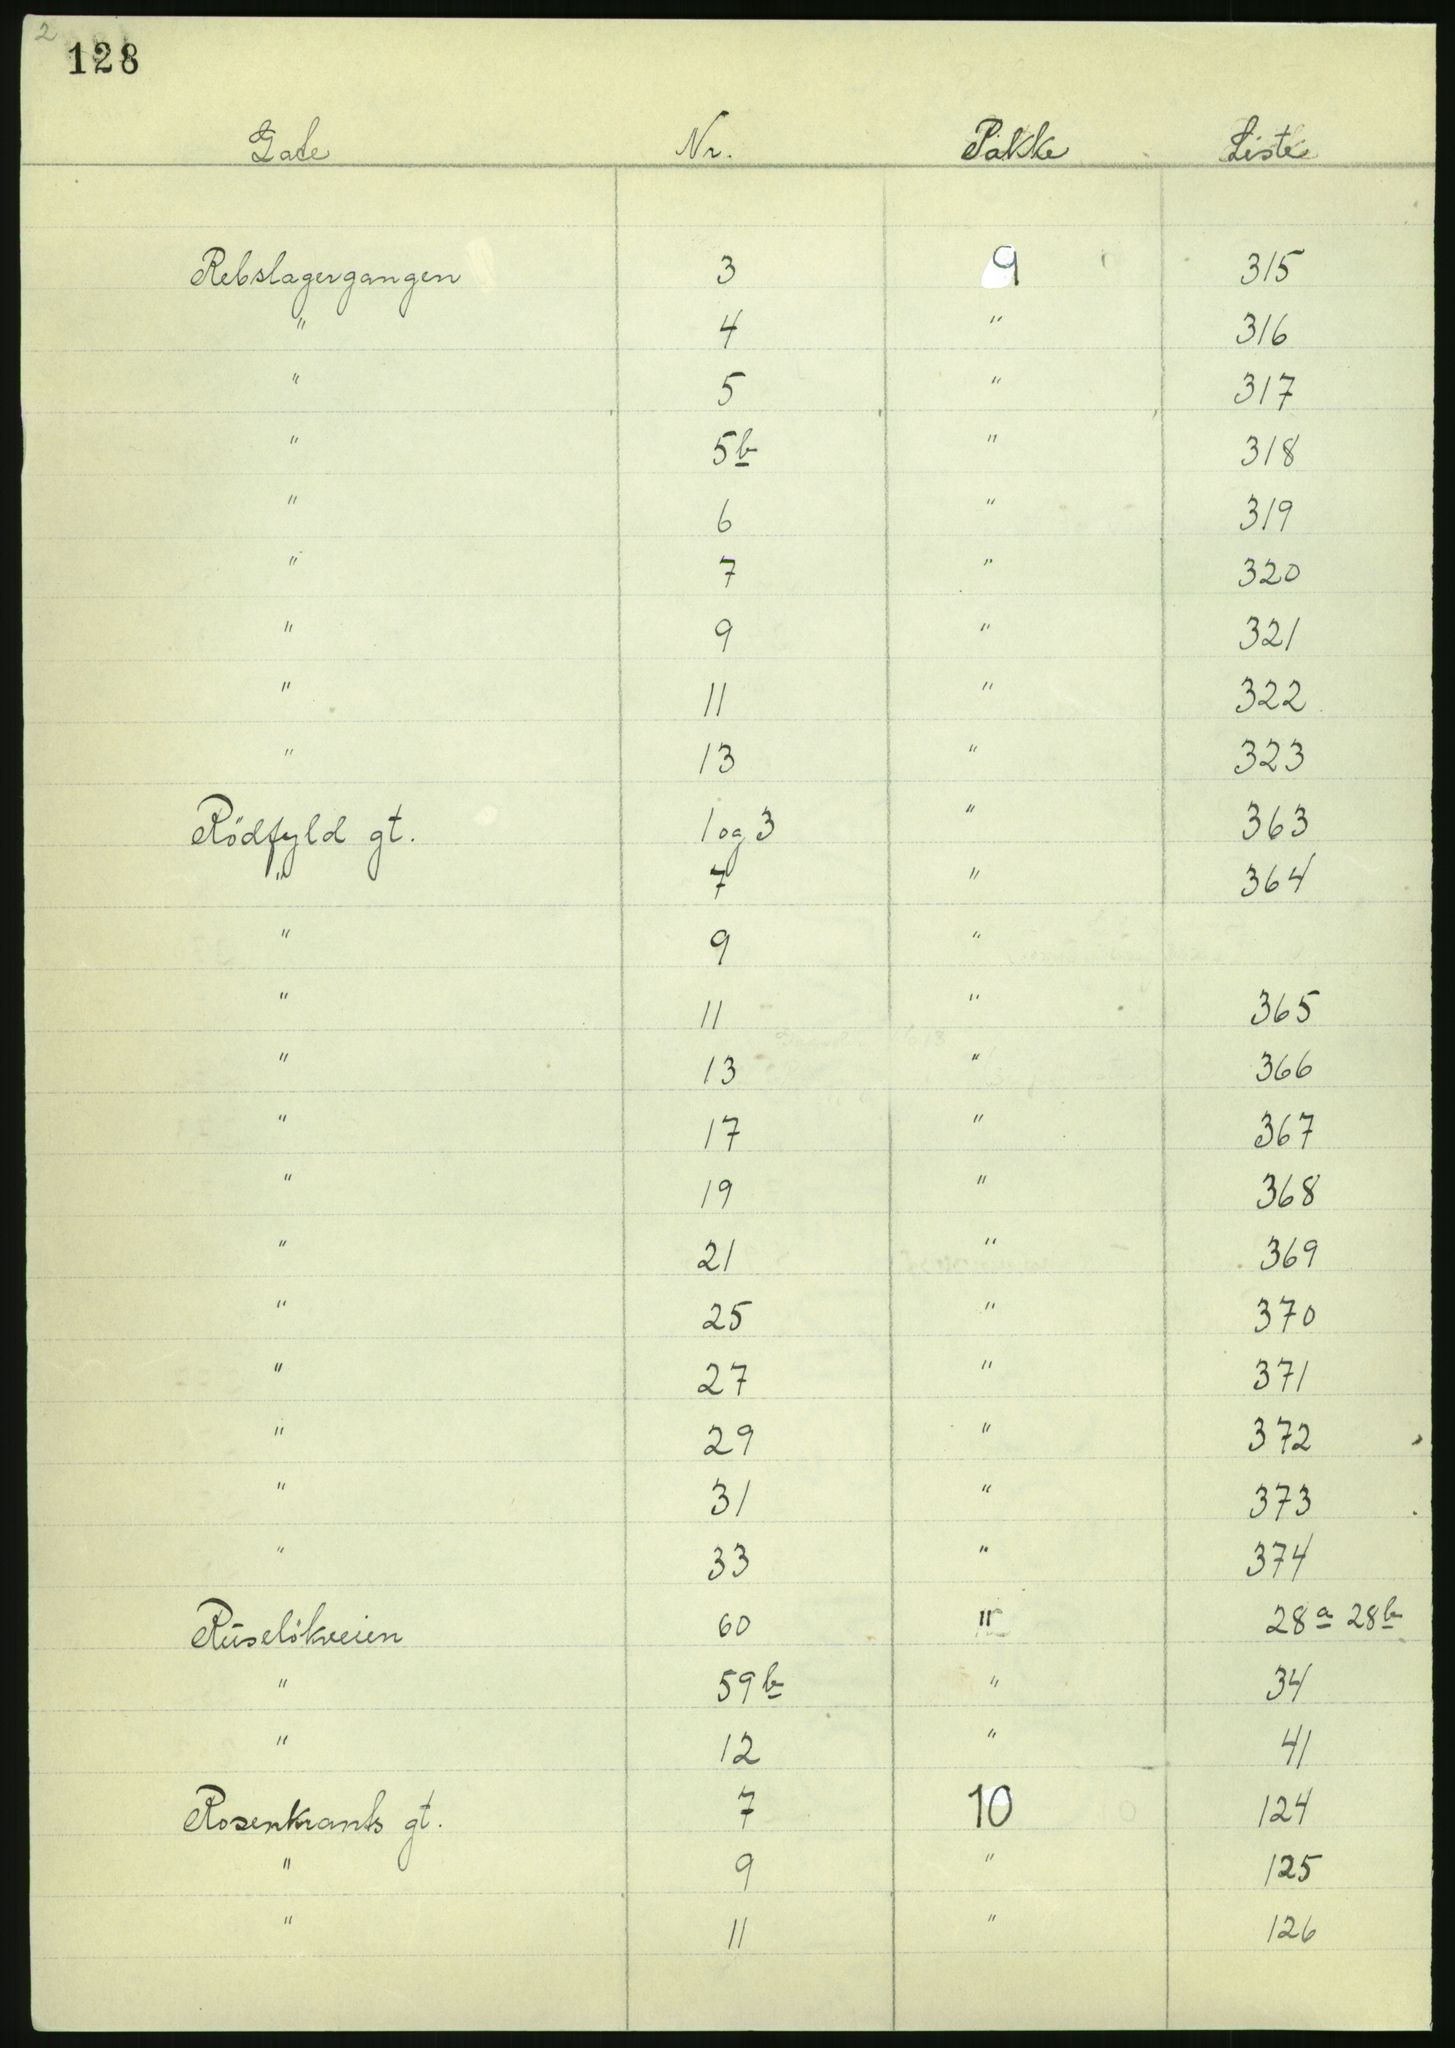 2
128
Gate Nr. Pakke Liste
Rebslagergangen 3 9 315
" 4 " 316
" 5 " 317
" 5b " 318
" 6 " 319
" 7 " 320
" 9 " 321
" 11 " 322
" 13 " 323
Rödfyld gt. 1 og 3 " 363
" 7 " 364
" 9 "
" 11 " 365
" 13 " 366
" 17 " 367
" 19 " 368
" 21 " 369
" 25 " 370
" 27 " 371
" 29 " 372
" 31 " 373
" 33 " 374
Ruselökveien 60 " 28a 28b
" 59b " 34
" 12 " 41
Rosenkrants gt. 7 10 124
" 9 " 125
" 11 " 126